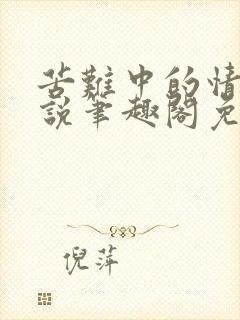 苦難中的情
說筆趣閣免
倪萍